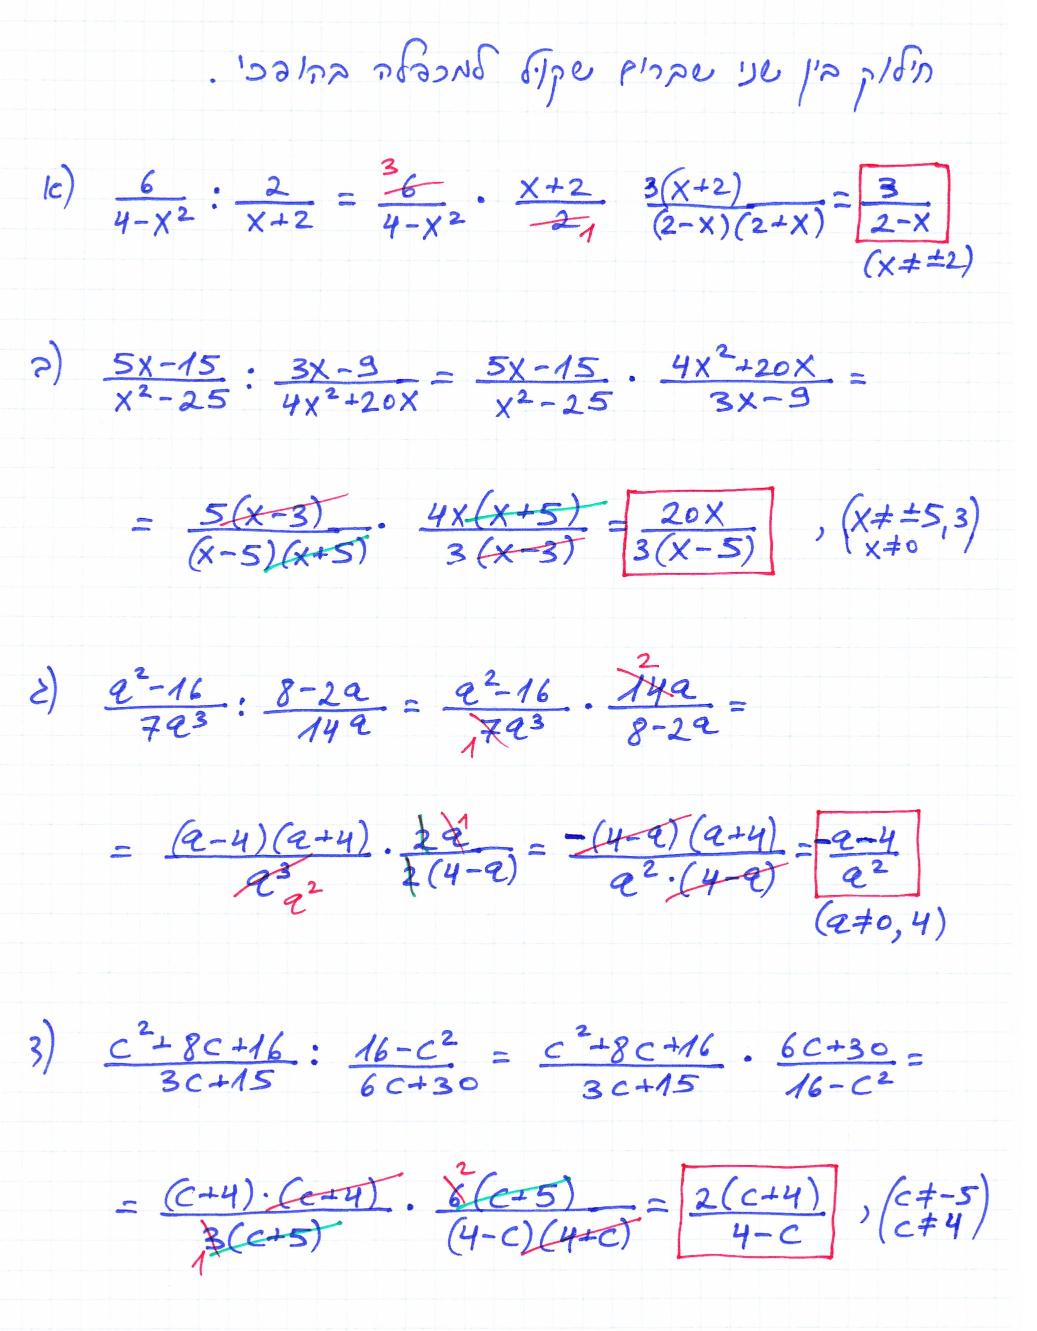 חילוק בין שני שברים שקול למכפלה בהופכי.
א) 6/(4-x²) : 2/(x+2) = 6/(4-x²) · (x+2)/2 3(x+2)/((2-x)(2+x)) = 3/(2-x)
3 1
(x≠±2)
ב) (5x-15)/(x²-25) : (3x-9)/(4x²+20x) = (5x-15)/(x²-25) · (4x²+20x)/(3x-9) =
= 5(x-3)/((x-5)(x+5)) · 4x(x+5)/(3(x-3)) = 20x/(3(x-5)) , (x≠±5,3 x≠0)
ג) (a²-16)/(7a³) : (8-2a)/(14a) = (a²-16)/(7a³) · 14a/(8-2a) =
2 1
= (a-4)(a+4)/a³ · 2a/(2(4-a)) = -(4-a)(a+4)/(a²·(4-a)) = (-a-4)/a²
1 a²
(a≠0,4)
ד) (c²+8c+16)/(3c+15) : (16-c²)/(6c+30) = (c²+8c+16)/(3c+15) · (6c+30)/(16-c²) =
= (c+4)·(c+4)/(3(c+5)) · 6(c+5)/((4-c)(4+c)) = 2(c+4)/(4-c) , (c≠-5 c≠4)
2 1